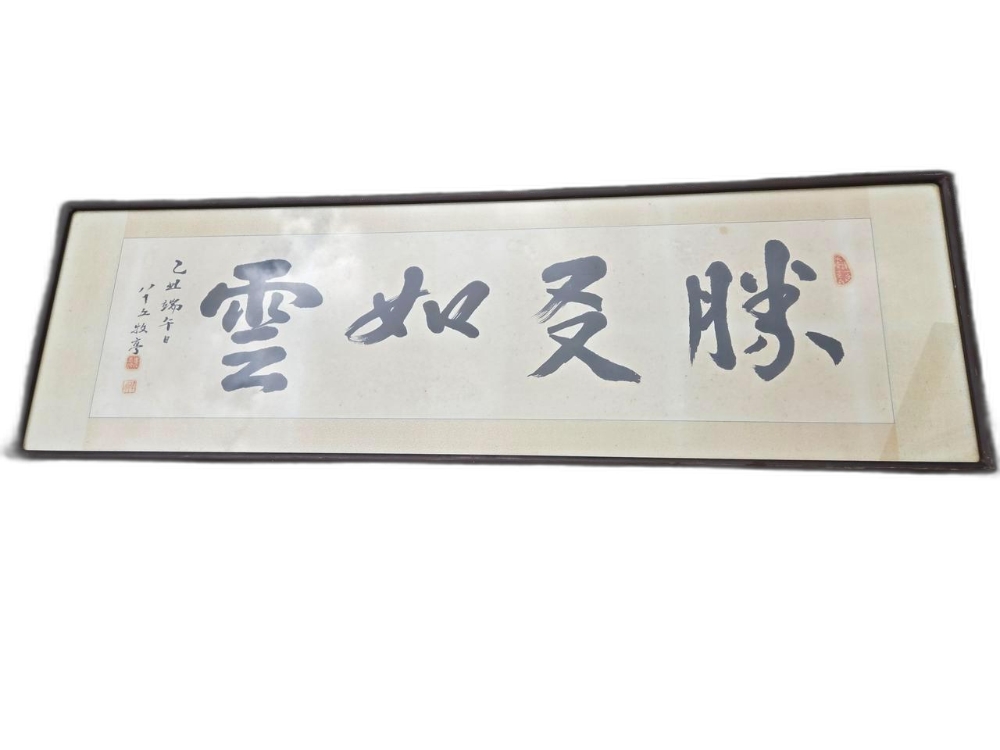 勝友如雲
乙丑端午日
八十五牧亭